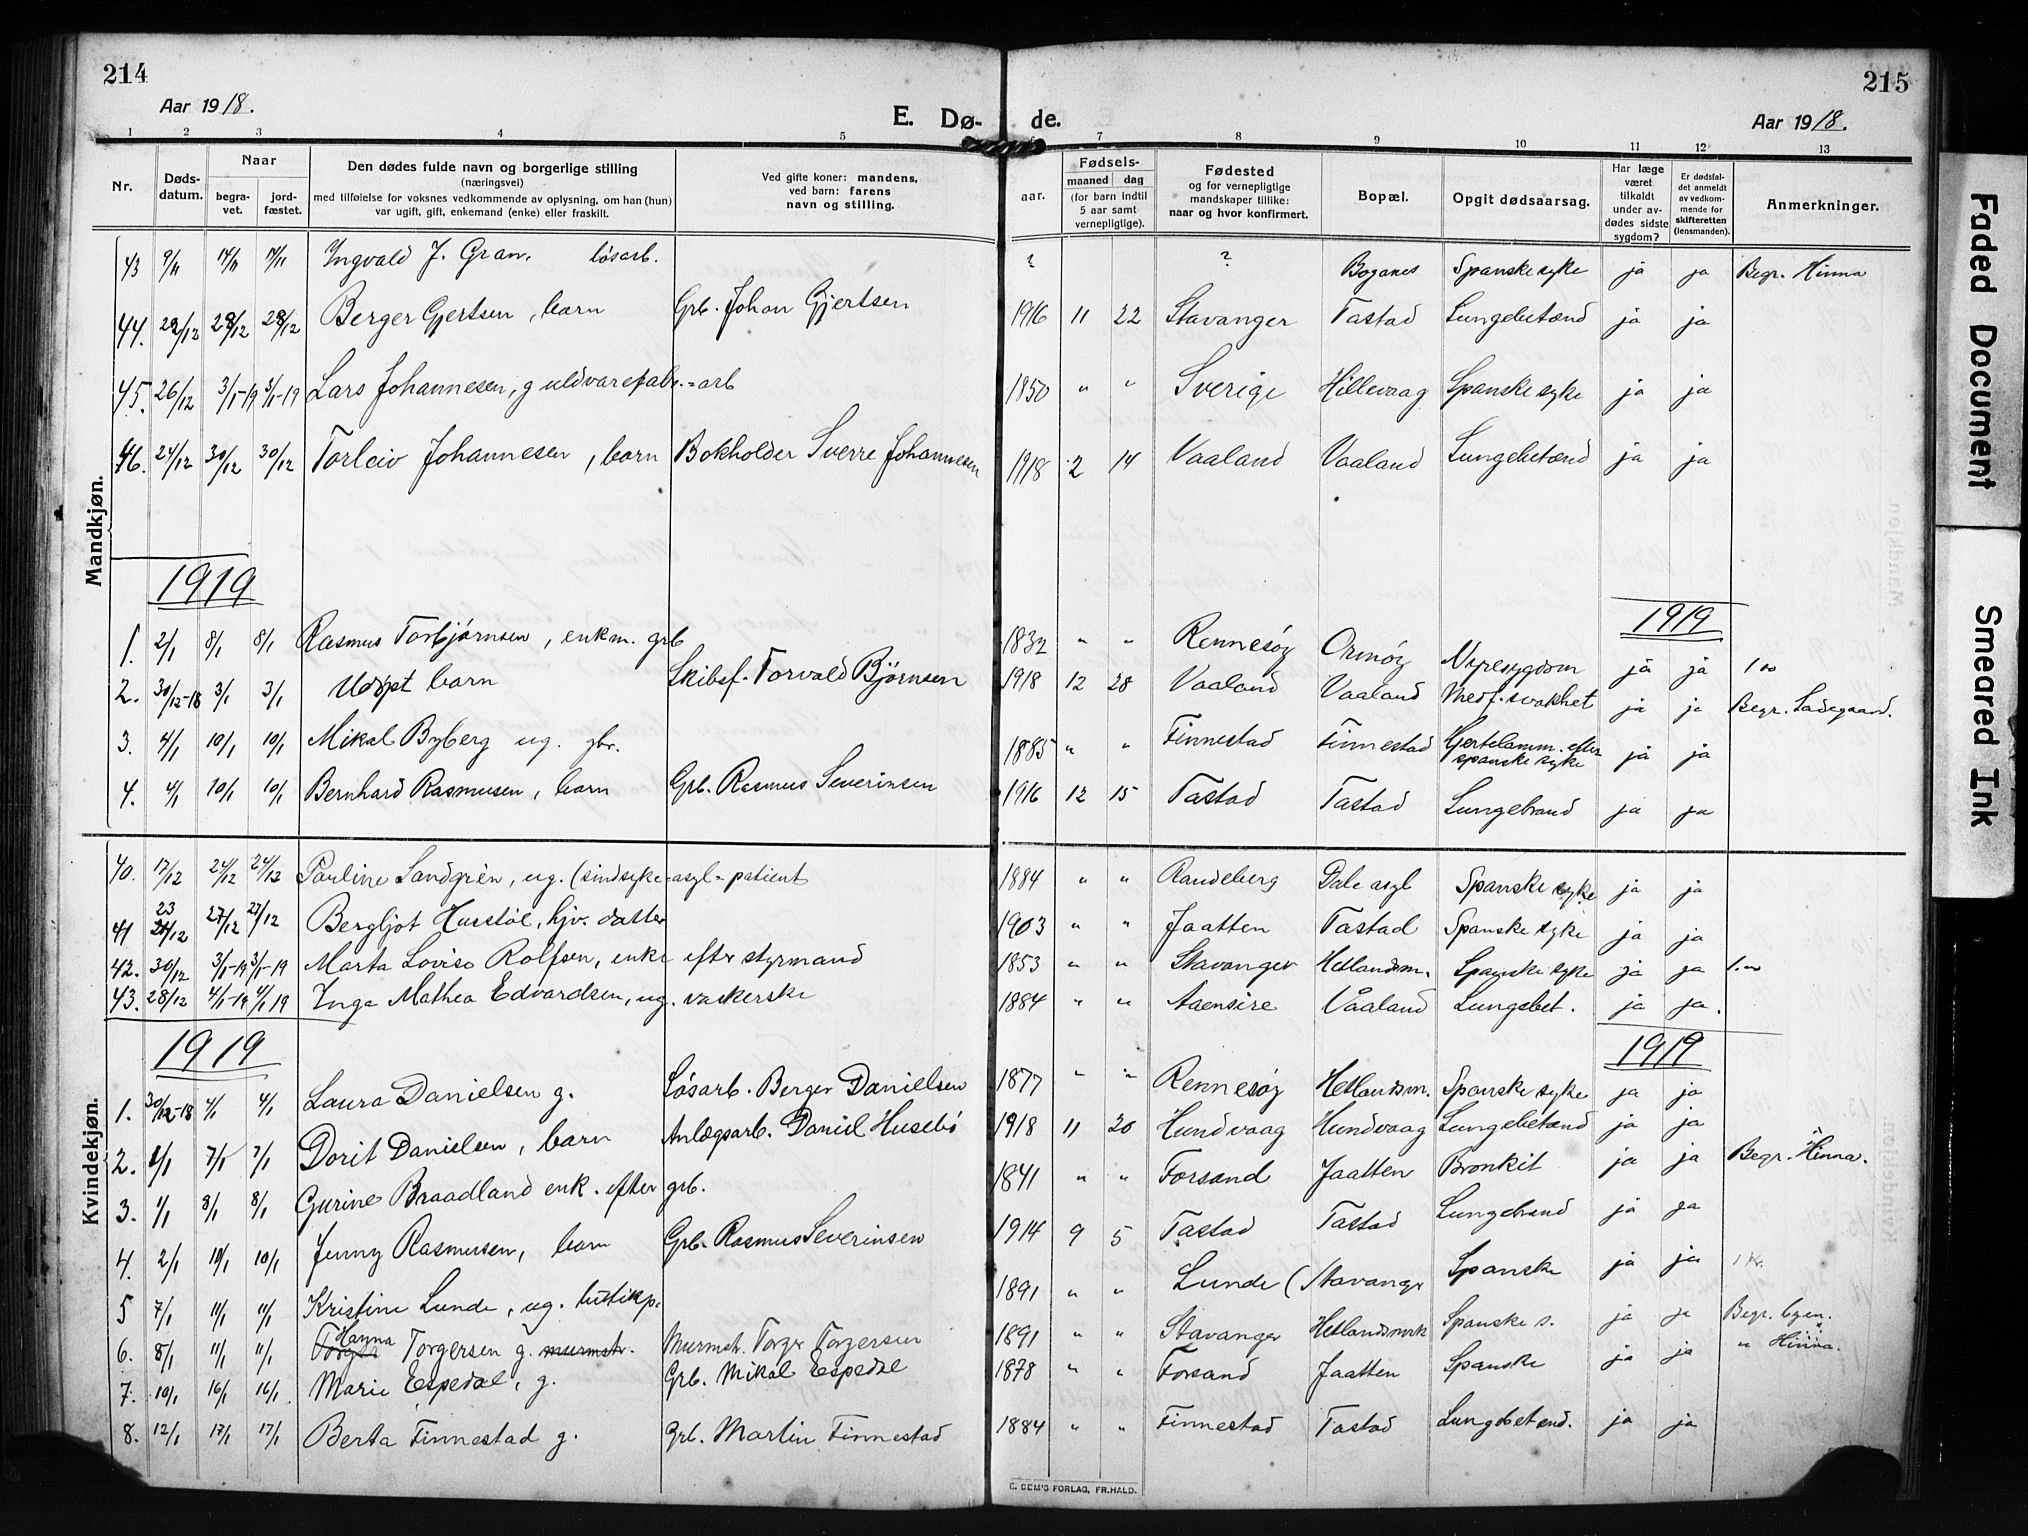 214
Aar 1918.
E. Dø- de.
215
Aar 1918.
1 2 3 4 5 7 8 9 10 11 12 13
Nr.
Døds-datum.
Naar
begra-vet.
jord-fæstet.
Den dødes fulde navn og borgerlige stilling
(næringsvei)
med tilføielse for voksnes vedkommende av oplysning, om han (hun)
var ugift, gift, enkemand (enke) eller fraskilt.
Ved gifte koner: mandens,
ved barn: farens
navn og stilling.
aar.
Fødsels-
maaned dag
(for barn indtil
5 aar samt
vernepligtige).
Fødested
og for vernepligtige
mandskaper tillike:
naar og hvor konfirmert.
Bopæl.
Opgit dødsaarsag.
Har læge
været
tilkaldt
under av-
dødes sidste
sygdom?
Er dødsfal-
det anmeldt
av vedkom-
mende for
skifteretten
(lensmanden).
Anmerkninger.
Mandkjøn.
43 9/11 14/11 14/11 Ingvald J. Gran, løsarb. ? ? Boganes Spanske syke ja ja Begr. Hinna
44. 22/12 28/12 28/12 Berger Gjertsen, barn Grb. Johan Gjertsen 1916 11 22 Stavanger Tastad Lungebetænd ja ja
45. 26/12 3/1-19 3/1-19 Lars Johannesen, g uldvarefabr.=arb 1850 " " Sverige Hillevaag Spanske syke ja ja
46. 24/12 30/12 30/12 Torleiv Johannesen, barn Bokholder Sverre Johannesen 1918 2 14 Vaaland Vaaland Lungebetænd ja ja
1919 1919
1. 2/1 8/1 8/1 Rasmus Torbjørnsen, enkm. grb 1832 " " Rennesøy Ormøy Nyresygdom ja ja 1 00
2. 30/12-18 3/1 3/1 Udøpt barn Skibsf. Torvald Bjørnsen 1918 12 28 Vaaland Vaaland Medf. svakhet ja ja Begr. Ladegaard.
3. 4/1 10/1 10/1 Mikal Byberg ug. gbr. 1885 " " Finnestad Finnestad Hjertelamm. efter spanske syke ja ja
4. 4/1 10/1 10/1 Bernhard Rasmusen, barn Grb. Rasmus Severinsen 1916 12 15 Tastad Tastad Lungebrand ja ja
Kvindekjøn.
40. 17/12 24/12 24/12 Pauline Sandgrén, ug. (sindsyke=asyl=patient 1884 " " Randeberg Dale asyl Spanske syke ja ja
41 23/12 27/12 27/12 Bergljot Husstøl, hjv. datter 1903 " " Jaatten Tastad Spanske syke ja ja
42. 30/12 3/1-19 3/1-19 Marta Lovise Rolfsen, enke efter styrmand 1853 " " Stavanger Hetlandsm. Spanske syke ja ja 1.00
43. 28/12 4/1-19 4/1 19 Inga Mathea Edvardsen, ug. vaskerske 1884 " " Aaensire Våaland Lungebet. ja ja.
1919 1919
1. 30/12-18 4/1 4/1 Laura Danielsen g. Løsarb. Berger Danielsen 1877 " " Rennesøy Hetlandsm. Spanske syke ja ja
2. 1/1 7/1 7/1 Dorit Danielsen, barn Anlægsarb. Daniel Husebø 1918 11 20 Hundvaag Hundvaag Lungebetænd ja ja
3. 1/1 8/1 8/1 Gurine Braadland enk. efter grb. 1841 " " Forsand Jaatten Bronkit ja ja Begr. Hinna.
4. 2/1 10/1 10/1 Jenny Rasmusen, barn Grb. Rasmus Severinsen 1914 9 5 Tastad Tastad Lungebrand ja ja
5 7/1 11/1 11/1 Kristine Lunde, ug. 1891 " " Lunde (Stavanger Spanske ja ja 1 Kr.
6. 8/1 11/1 11/1 Hanna Torgersen g. murmstr. Murmstr. Torger Torgersen 1891 " " Stavanger Hetlandsmrk Spanske s. ja ja Begr. byen.
7. 10/1 16/1 16/1 Marie Espedal, g. Grb. Mikal Espedal 1878 " " Forsand Jaatten Spanske ja ja " Hinna.
8. 12/1 17/1 17/1 Berta Finnestad g. Grb. Martin Finnestad 1884 " " Finnestad Tastad Lungebetænd. ja ja
E. SEM'S FORLAG, FR.HALD.
Faded Document
Smeared Ink